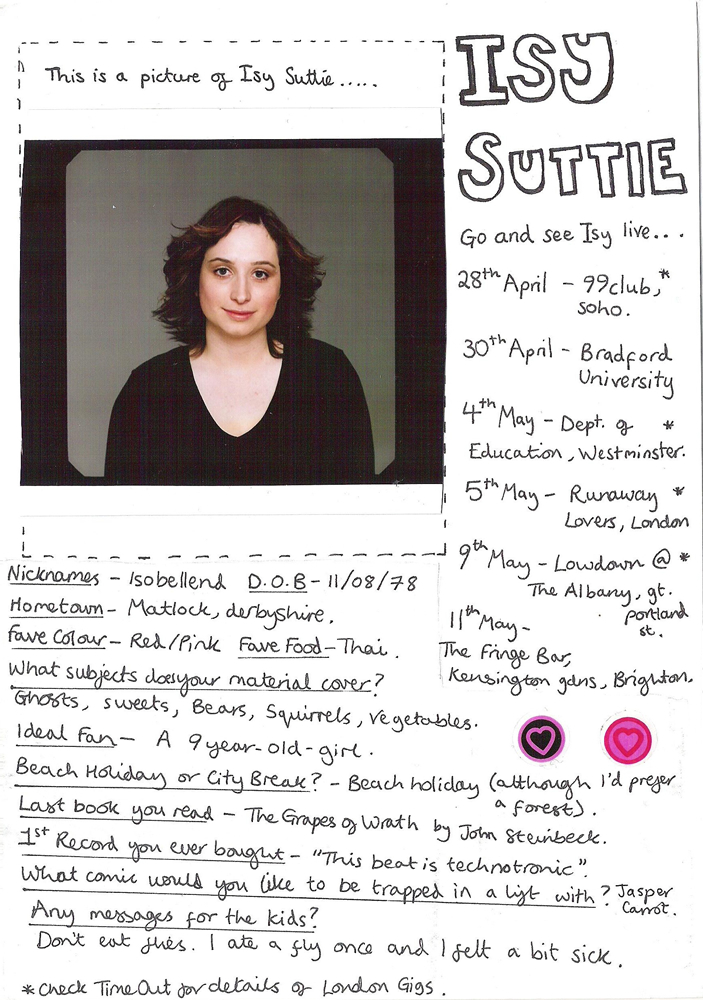 This is a picture of Isy Suttie.....
ISY
SUTTIE
Go and see Isy live...
28th April - 99club,*
soho.
30th April - Bradford
University
4th May - Dept. of *
Education, Westminster.
5th May - Runaway *
Lovers, London
9th May - Lowdown @ *
The Albany, gt.
portland
st.
11th May -
The Fringe Bar,
Kensington gdns, Brighton.
Nicknames - Isobellend D.O.B - 11/08/78
Hometown - Matlock, derbyshire.
Fave Colour - Red/Pink Fave Food - Thai.
What subjects does your material cover?
Ghosts, sweets, Bears, Squirrels, vegetables.
Ideal Fan - A 9 year-old-girl.
Beach Holiday or City Break? - Beach holiday (although I'd prefer
a forest).
Last book you read - The Grapes of Wrath by John Steinbeck.
1st Record you ever bought - "This beat is technotronic".
What comic would you like to be trapped in a lift with? Jasper
Carrot.
Any messages for the kids?
Don't eat flies. I ate a fly once and I felt a bit sick.
*check TimeOut for details of London Gigs.